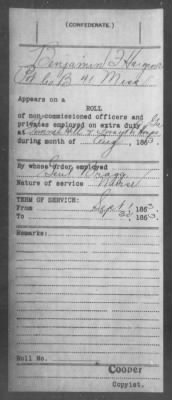 (CONFEDERATE)
Benjamin
Co B 41 Miss
Appears on a
ROLL
of non-commissioned officers and
privates employed on extra duty
at Tunnel Hill Ga
during month of Aug 1863.
By whose order employed
Genl Bragg
Nature of service Nurse
TERM OF SERVICE:
From Sept 1, 1863
To 1863.
Remarks:
Roll No.
Cooper
Copyist.